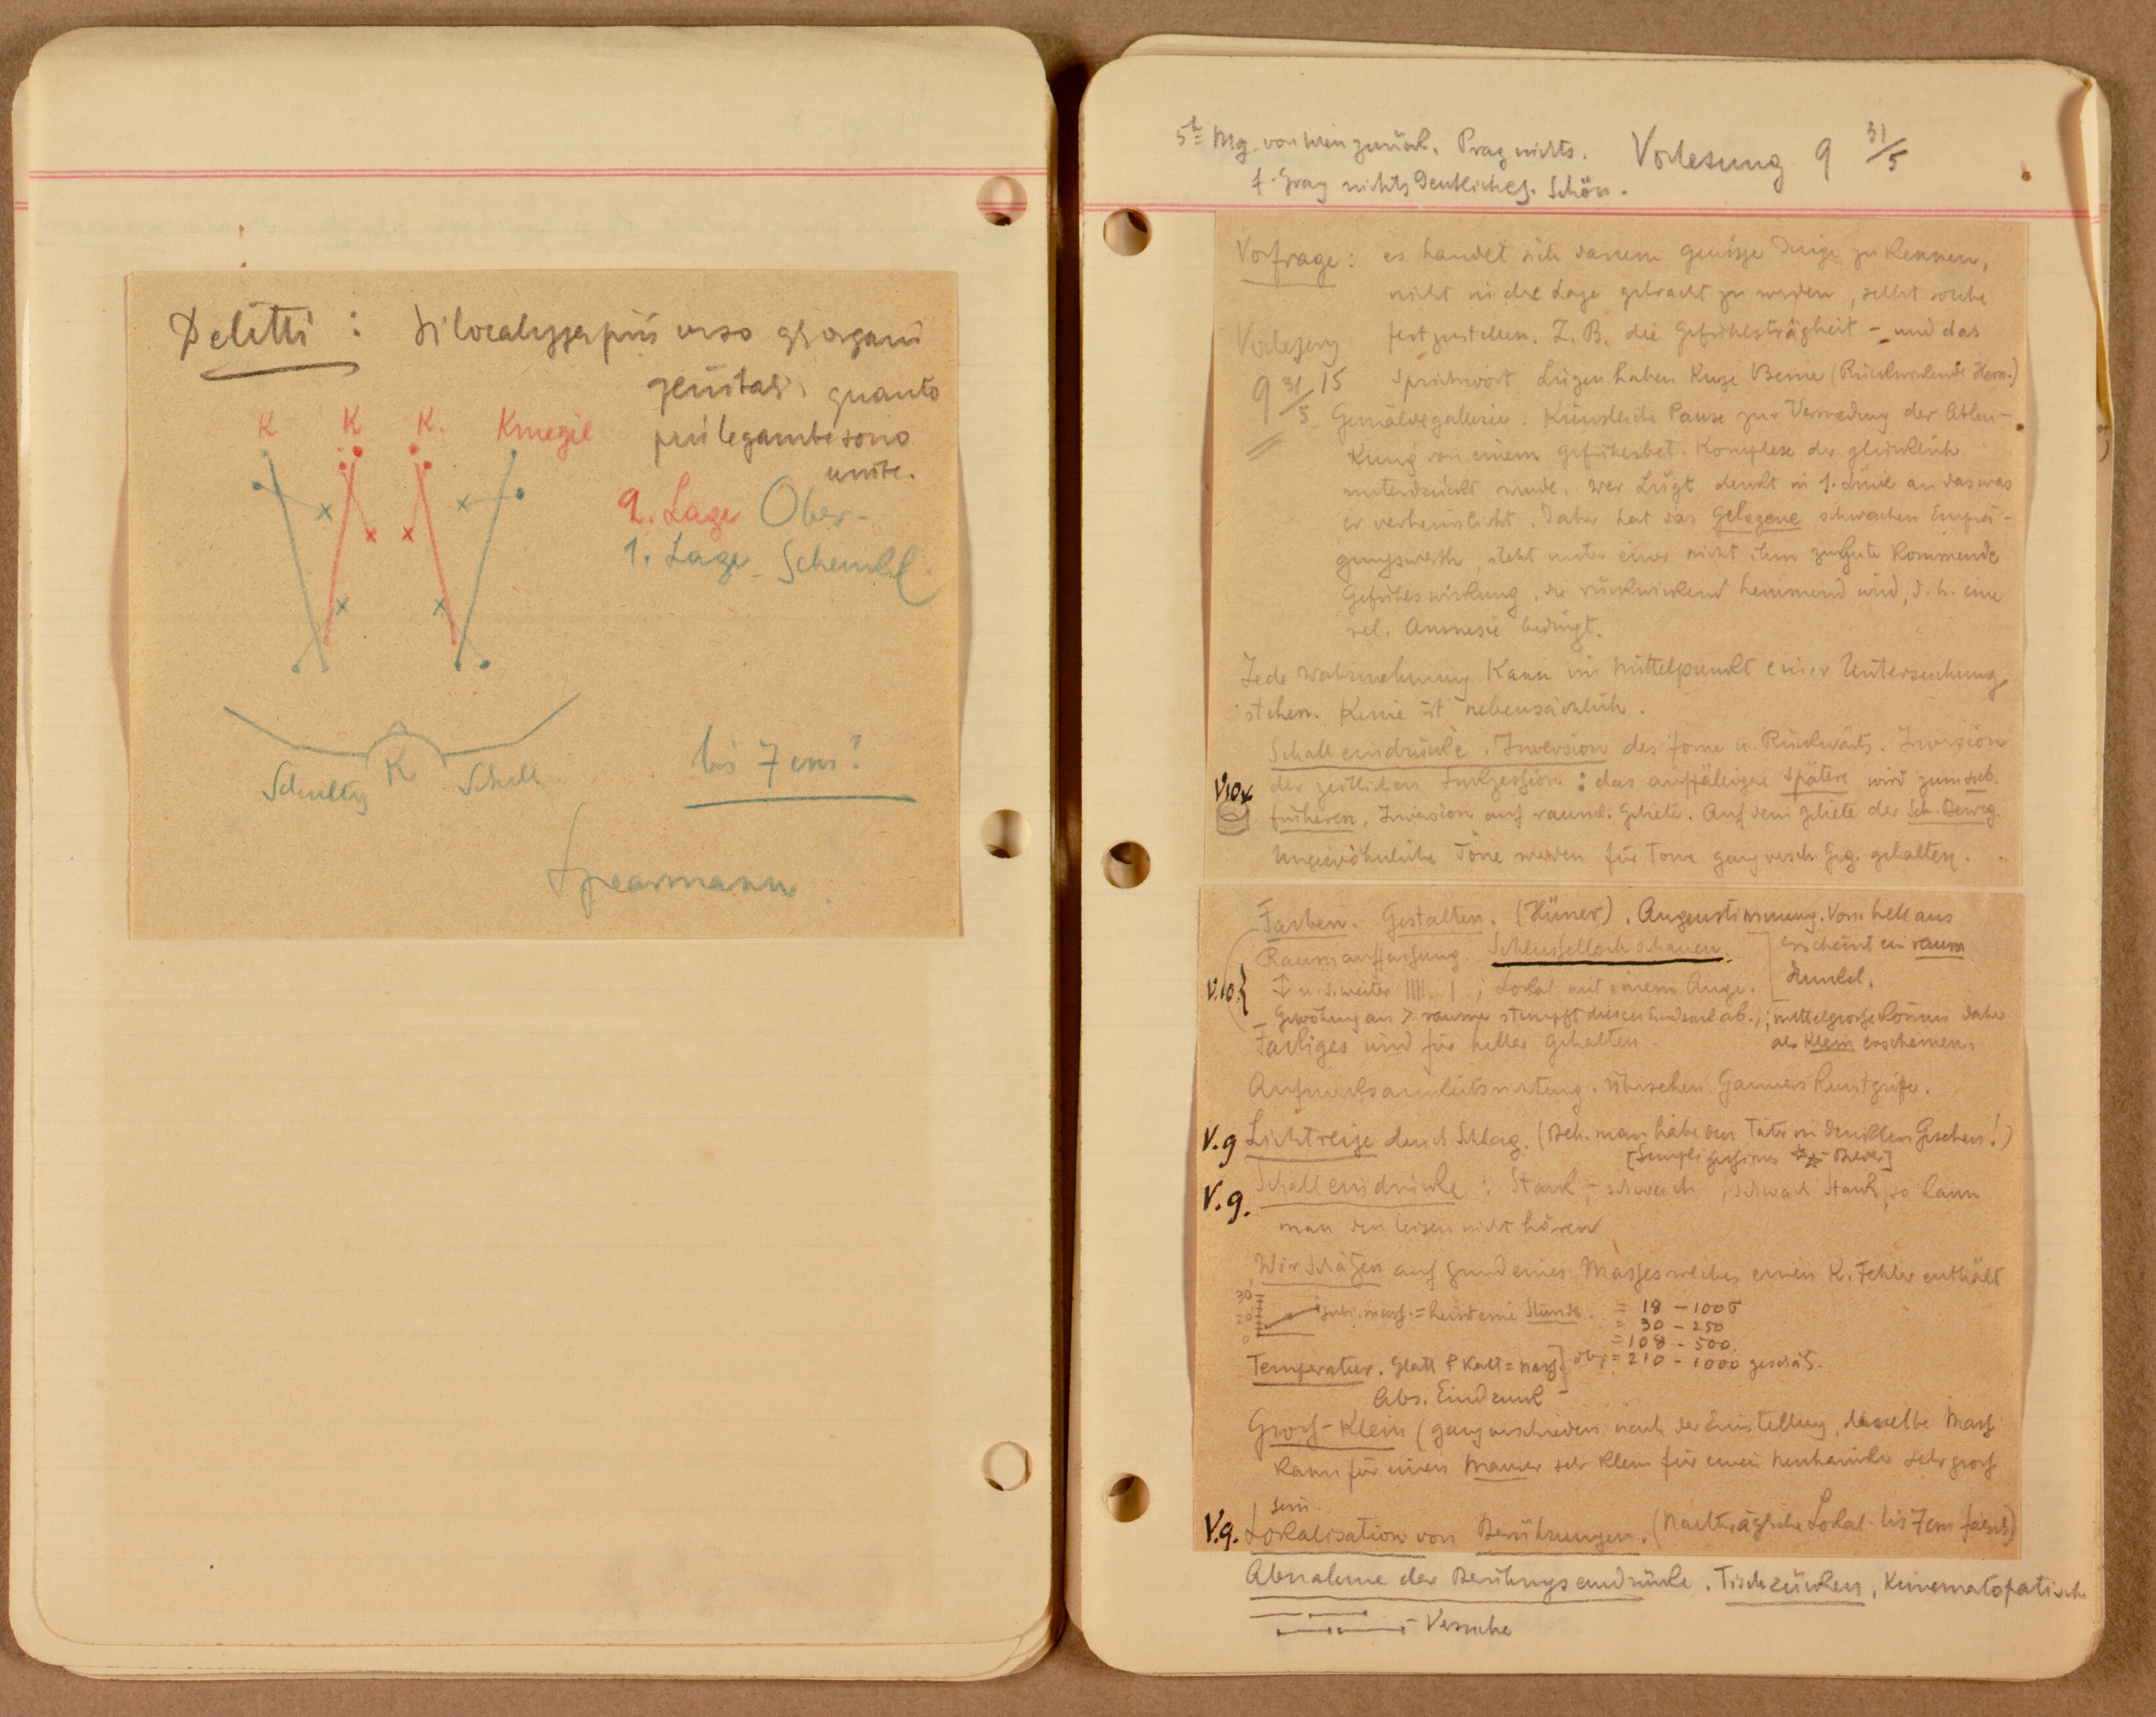 Deletti :
genitali quanto
più le gambe sono
unite.
K K K. Kniegel
2. Lage Ober-
1. Lage Schenkel
K
bis 7 cm?
Spearmann
5h Mg. von Wien zurück. Prag nichts. Vorlesung 9 31/5
f. Graz nichts Deutliches. Schön.
Vorfrage : es handelt sich darum gewisse Dinge zu kennen,
nicht in die Lage gebracht zu werden, selbst solche
festzustellen. Z. B. die Gefühlsträgheit - und das
Vorlesung
9 31/5 15
Sprichwort Lügen haben kurze Beine (Rückwirkende Hem.)
Gemäldegallerie. Künstliche Pause zur Vermeidung der Ablen-
kung von einem gefühlsbet. Komplexe der glücklich
unterdrückt wurde. Wer lügt denkt in 1. Linie an das was
er verheimlicht. Daher hat das Gelogene schwachen Einprä-
gungswerth, steht unter einer nicht ihm zugute kommende
Gefühlswirkung, die rückwirkend hemmend wird, d. h. eine
rel. Amnesie bedingt.
Jede Wahrnehmung kann im Mittelpunkt einer Untersuchung
stehen. Keine ist nebensächlich.
Schalleindrücke. Inversion des forne u. Rückwärts. Inversion
V10
der zeitlichen Sukzession : das auffällige Spätere wird zum sub.
früheren. Inversion auf räuml. Gebiete. Auf dem gebiete der Sch. Beweg.
Ungewöhnliche Töne werden für Töne ganz versch. Geg. gehalten.
Farben. Gestalten. (Hüner). Augenstimmung. Vom hell aus
Raumauffassung. Schlüssellochschauen. erscheint ein raum
dunkel.
V.10. u. s. weiter |||| | ; Lokal mit einem Auge.
Gewöhnung an > räume stumpft diesen Eindruck ab. ; mittelgrosse können daher
als klein erscheinen
Farbiges wird für heller gehalten.
Aufmerksamkeitsrichtung. Übersehen. Gauners Kunstgriffe.
V.9 Lichtreize durch Schlag. (Beh. man habe den Täter im dunklen gesehen!)
[Simplizissimus]
V.9. Schalleindrücke : Stark - schwach, schwach Stark, so kann
man den leisen nicht hören
Wir schäzen auf grund eines Masses welches einen K. Fehler enthält
30
20
0
subj. mass. = heisst eine Stunde.
= 18 - 100 σ
= 30 - 250
= 108 - 500
= 210 - 1000 geschäz.
Temperatur. Glatt & Kalt = nass.
Abs. Eindruck
Gross-Klein (ganz verschieden nach der Einstellung, dasselbe Mass
kann für einen Maurer sehr klein für einen Mechaniker sehr gross
sein.
V.9. Lokalisation von Berührungen. (Nachträgliche Lokal. bis 7 cm falsch)
Abnahme der Berührungseindrücke. Tischrücken, Kinematopatische
- Versuche